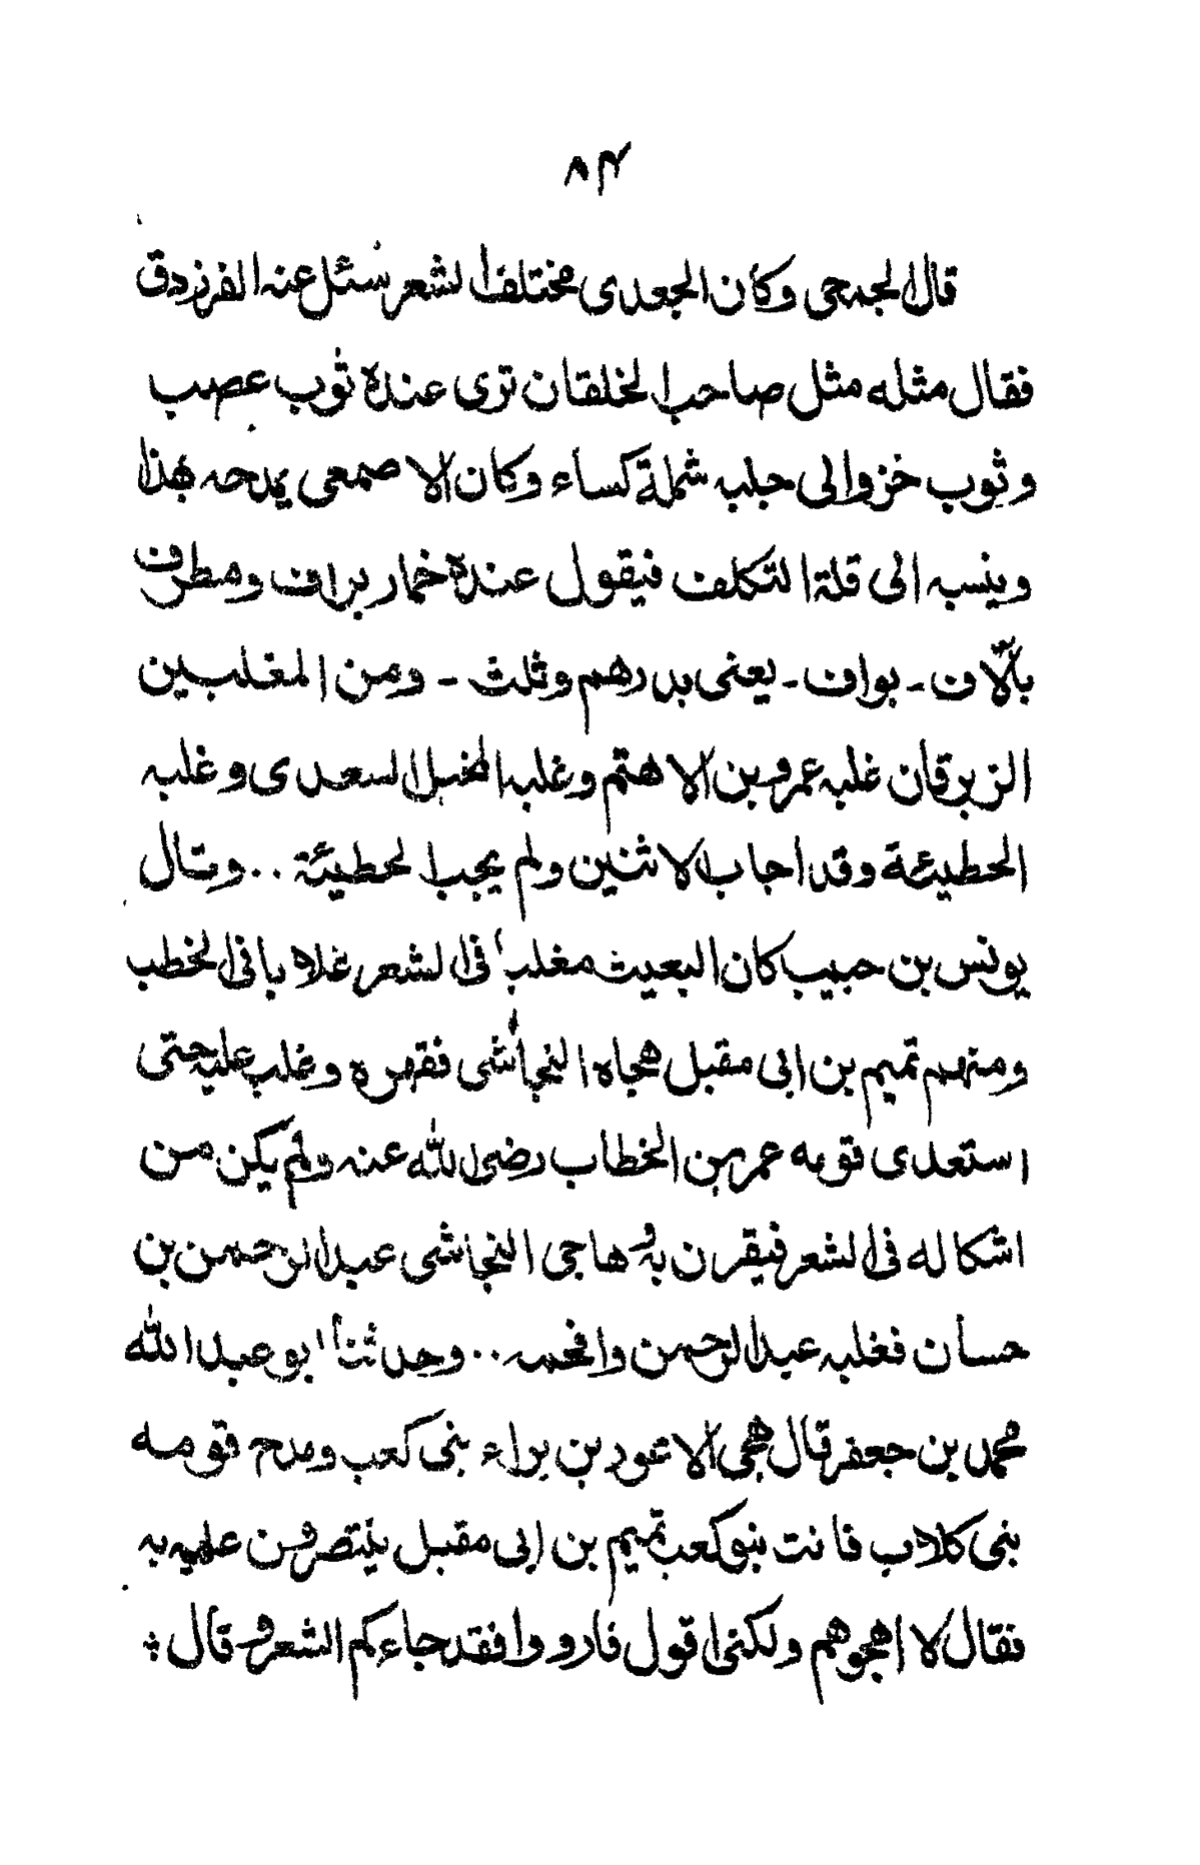 ٨٤
قال الجمحي وكان الجعدى مختلف الشعر سُئل عنه الفرزدق
فقال مثله مثل صاحب الخلقان ترى عنده ثوب عصب
وثوب خز والى جلبه شملة كساء وكان الاصمعى يمدحه بهذا
وينسبه الى قلة التكلف فيقول عنده خمار بواف ومطرف
بآلاف - بواف - يعنى بدرهم وثلث - ومن المغلبين
الزبرقان غلبه عمرو بن الاهتم وغلبه المخبل السعدى وغلبه
الحطيئة وقد اجاب الاثنين ولم يجب الحطيئة .. وقال
يونس بن حبيب كان البعيث مغلباً فى الشعر غلابا فى الخطب
ومنهم تميم بن ابى مقبل هجاه النجاشى فقهره وغلب عليه حتى
استعدى قومه عمر بن الخطاب رضى الله عنه ولم يكن من
اشكاله فى الشعر فيقرن به وهاجى النجاشى عبد الرحمن بن
حسان فغلبه عبد الرحمن وافحمه .. وحدثنا ابو عبد الله
محمد بن جعفر قال هجى الاعور بن براء بنى كعب ومدح قومه
بنى كلاب فاتت بنو كعب تميم بن ابى مقبل ينتصرون عليه به
فقال لا اهجوهم ولكنى اقول فارووا فقد جاءكم الشعر وقال